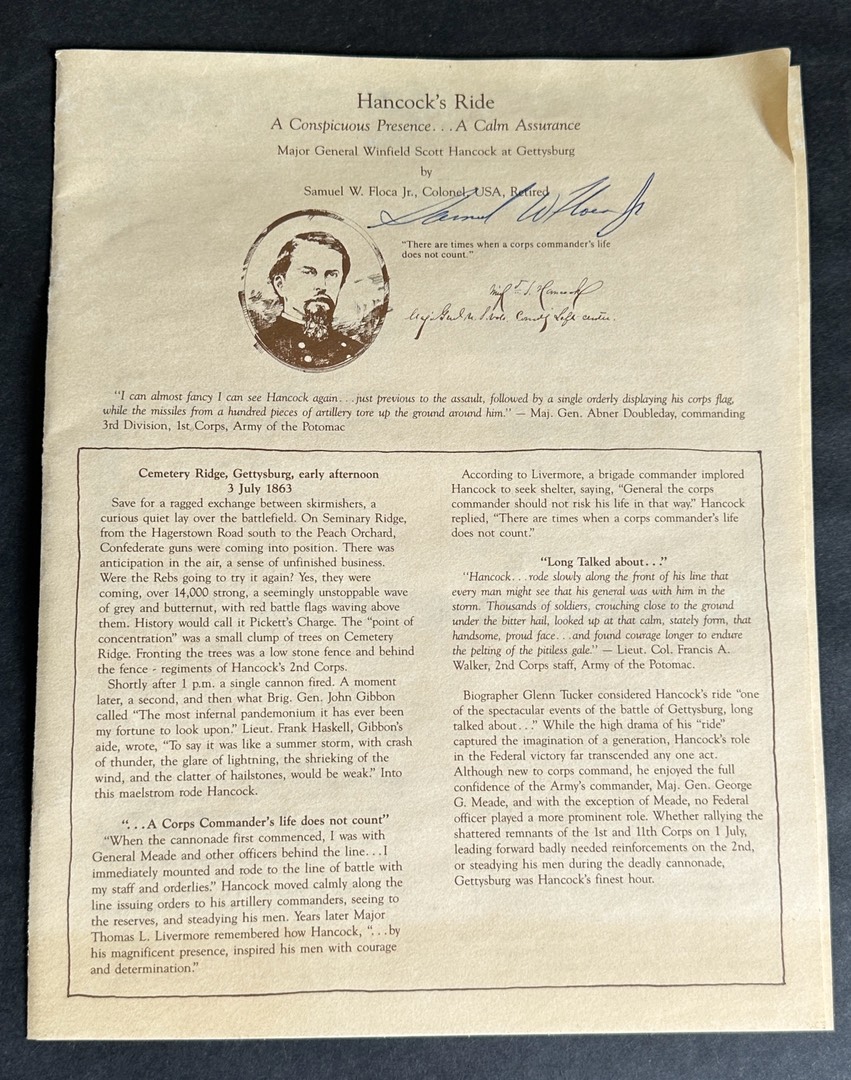 Hancock's Ride
A Conspicuous Presence. . . A Calm Assurance
Major General Winfield Scott Hancock at Gettysburg
by
Samuel W. Floca Jr., Colonel, USA, Retired
Samuel W Floca Jr
"There are times when a corps commander's life
does not count."
Winf S. Hancock
Maj. Genl. Comdg Left center.
"I can almost fancy I can see Hancock again. . .just previous to the assault, followed by a single orderly displaying his corps flag,
while the missiles from a hundred pieces of artillery tore up the ground around him." — Maj. Gen. Abner Doubleday, commanding
3rd Division, 1st Corps, Army of the Potomac
Cemetery Ridge, Gettysburg, early afternoon
3 July 1863
Save for a ragged exchange between skirmishers, a
curious quiet lay over the battlefield. On Seminary Ridge,
from the Hagerstown Road south to the Peach Orchard,
Confederate guns were coming into position. There was
anticipation in the air, a sense of unfinished business.
Were the Rebs going to try it again? Yes, they were
coming, over 14,000 strong, a seemingly unstoppable wave
of grey and butternut, with red battle flags waving above
them. History would call it Pickett's Charge. The "point of
concentration" was a small clump of trees on Cemetery
Ridge. Fronting the trees was a low stone fence and behind
the fence - regiments of Hancock's 2nd Corps.
Shortly after 1 p.m. a single cannon fired. A moment
later, a second, and then what Brig. Gen. John Gibbon
called "The most infernal pandemonium it has ever been
my fortune to look upon." Lieut. Frank Haskell, Gibbon's
aide, wrote, "To say it was like a summer storm, with crash
of thunder, the glare of lightning, the shrieking of the
wind, and the clatter of hailstones, would be weak." Into
this maelstrom rode Hancock.
". . .A Corps Commander's life does not count"
"When the cannonade first commenced, I was with
General Meade and other officers behind the line. . .I
immediately mounted and rode to the line of battle with
my staff and orderlies." Hancock moved calmly along the
line issuing orders to his artillery commanders, seeing to
the reserves, and steadying his men. Years later Major
Thomas L. Livermore remembered how Hancock, ". . .by
his magnificent presence, inspired his men with courage
and determination."
According to Livermore, a brigade commander implored
Hancock to seek shelter, saying, "General the corps
commander should not risk his life in that way." Hancock
replied, "There are times when a corps commander's life
does not count."
"Long Talked about. . ."
"Hancock. . .rode slowly along the front of his line that
every man might see that his general was with him in the
storm. Thousands of soldiers, crouching close to the ground
under the bitter hail, looked up at that calm, stately form, that
handsome, proud face. . .and found courage longer to endure
the pelting of the pitiless gale." — Lieut. Col. Francis A.
Walker, 2nd Corps staff, Army of the Potomac.
Biographer Glenn Tucker considered Hancock's ride "one
of the spectacular events of the battle of Gettysburg, long
talked about. . ." While the high drama of his "ride"
captured the imagination of a generation, Hancock's role
in the Federal victory far transcended any one act.
Although new to corps command, he enjoyed the full
confidence of the Army's commander, Maj. Gen. George
G. Meade, and with the exception of Meade, no Federal
officer played a more prominent role. Whether rallying the
shattered remnants of the 1st and 11th Corps on 1 July,
leading forward badly needed reinforcements on the 2nd,
or steadying his men during the deadly cannonade,
Gettysburg was Hancock's finest hour.